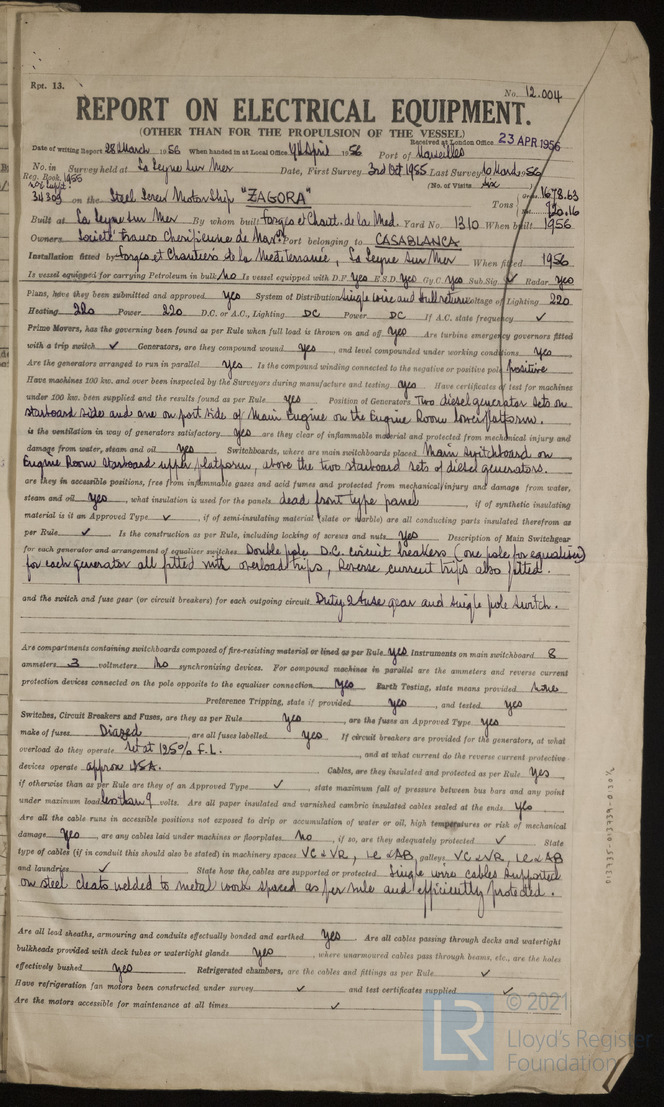 Rpt. 13.
No. 12.004
REPORT ON ELECTRICAL EQUIPMENT.
(OTHER THAN FOR THE PROPULSION OF THE VESSEL)
Received at London Office 23 APR 1956
Date of writing Report 28 March 1956 When handed in at Local Office April 1956 Port of Marseilles
No. in Reg. Book 1955 Survey held at La Seyne sur Mer Date, First Survey 3rd Oct 1955 Last Survey 1956
(No. of Visits six
34309 on the Steel Screw Motor Ship "ZAGORA" Tons 1678.63
Built at La Seyne sur Mer By whom built Forges et Chant. de la Med. Yard No. 1310 When built 1956
Owners Société Franco Chérifienne de Port belonging to CASABLANCA
Installation fitted by Forges et Chantiers de la Mediterranée, La Seyne sur Mer When fitted 1956
Is vessel equipped for carrying Petroleum in bulk No Is vessel equipped with D.F. Yes E.S.D. Yes Gy.C. Yes Sub.Sig. ✓ Radar Yes
Plans, have they been submitted and approved Yes System of Distribution Single wire and hull return Voltage of Lighting 220
Heating 220 Power 220 D.C. or A.C., Lighting DC Power DC If A.C. state frequency ✓
Prime Movers, has the governing been found as per Rule when full load is thrown on and off Yes Are turbine emergency governors fitted
with a trip switch ✓ Generators, are they compound wound Yes, and level compounded under working conditions Yes
Are the generators arranged to run in parallel Yes Is the compound winding connected to the negative or positive pole positive
Have machines 100 kw. and over been inspected by the Surveyors during manufacture and testing Yes Have certificates of test for machines
under 100 kw. been supplied and the results found as per Rule Yes Position of Generators Two diesel generator sets on
starboard side and one on port side of Main Engine on the Engine Room lower platform.
is the ventilation in way of generators satisfactory Yes are they clear of inflammable material and protected from mechanical injury and
damage from water, steam and oil Yes Switchboards, where are main switchboards placed Main Switchboard on
Engine Room Starboard upper platform, above the two starboard sets of diesel generators.
are they in accessible positions, free from inflammable gases and acid fumes and protected from mechanical injury and damage from water,
steam and oil Yes, what insulation is used for the panels dead front type panel, if of synthetic insulating
material is it an Approved Type ✓, if of semi-insulating material (slate or marble) are all conducting parts insulated therefrom as
per Rule ✓ Is the construction as per Rule, including locking of screws and nuts Yes Description of Main Switchgear
for each generator and arrangement of equaliser switches Double pole D.C. circuit breakers (one pole for equaliser)
for each generator all fitted with overload trips, Reverse current trips also fitted.
and the switch and fuse gear (or circuit breakers) for each outgoing circuit fuse gear and single pole switch.
Are compartments containing switchboards composed of fire-resisting material or lined as per Rule Yes Instruments on main switchboard 8
ammeters 3 voltmeters No synchronizing devices. For compound machines in parallel are the ammeters and reverse current
protection devices connected on the pole opposite to the equaliser connection Yes Earth Testing, state means provided
Preference Tripping, state if provided Yes, and tested Yes
Switches, Circuit Breakers and Fuses, are they as per Rule Yes, are the fuses an Approved Type Yes
make of fuses Diazed, are all fuses labelled Yes If circuit breakers are provided for the generators, at what
overload do they operate Set at 125% F.L., and at what current do the reverse current protective
devices operate approx 45A. Cables, are they insulated and protected as per Rule Yes
if otherwise than as per Rule are they of an Approved Type ✓, state maximum fall of pressure between bus bars and any point
under maximum load less than 9 volts. Are all paper insulated and varnished cambric insulated cables sealed at the ends Yes
Are all the cable runs in accessible positions not exposed to drip or accumulation of water or oil, high temperatures or risk of mechanical
damage Yes, are any cables laid under machines or floorplates No, if so, are they adequately protected ✓ State
type of cables (if in conduit this should also be stated) in machinery spaces VC & VR, LC & AB, galleys VC & VR, LC & AB
and laundries ✓ State how the cables are supported or protected Single wire cables supported
on steel cleats welded to metal work spaced as per rule and efficiently protected.
Are all lead sheaths, armouring and conduits effectually bonded and earthed Yes Are all cables passing through decks and watertight
bulkheads provided with deck tubes or watertight glands Yes, where unarmoured cables pass through beams, etc., are the holes
effectively bushed Yes Refrigerated chambers, are the cables and fittings as per Rule ✓
Have refrigeration fan motors been constructed under survey ✓ and test certificates supplied ✓
Are the motors accessible for maintenance at all times ✓
© 2021
LR
Lloyd's Register
Foundation